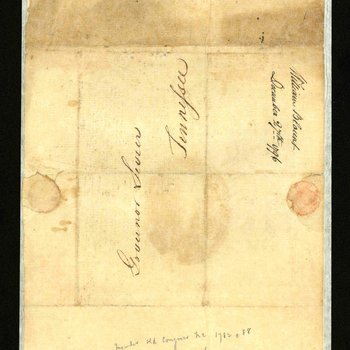 William Blount
December 27th 1796
Governor Sevier
Tennessee
Member Old Congress N.C. 1782 & 88